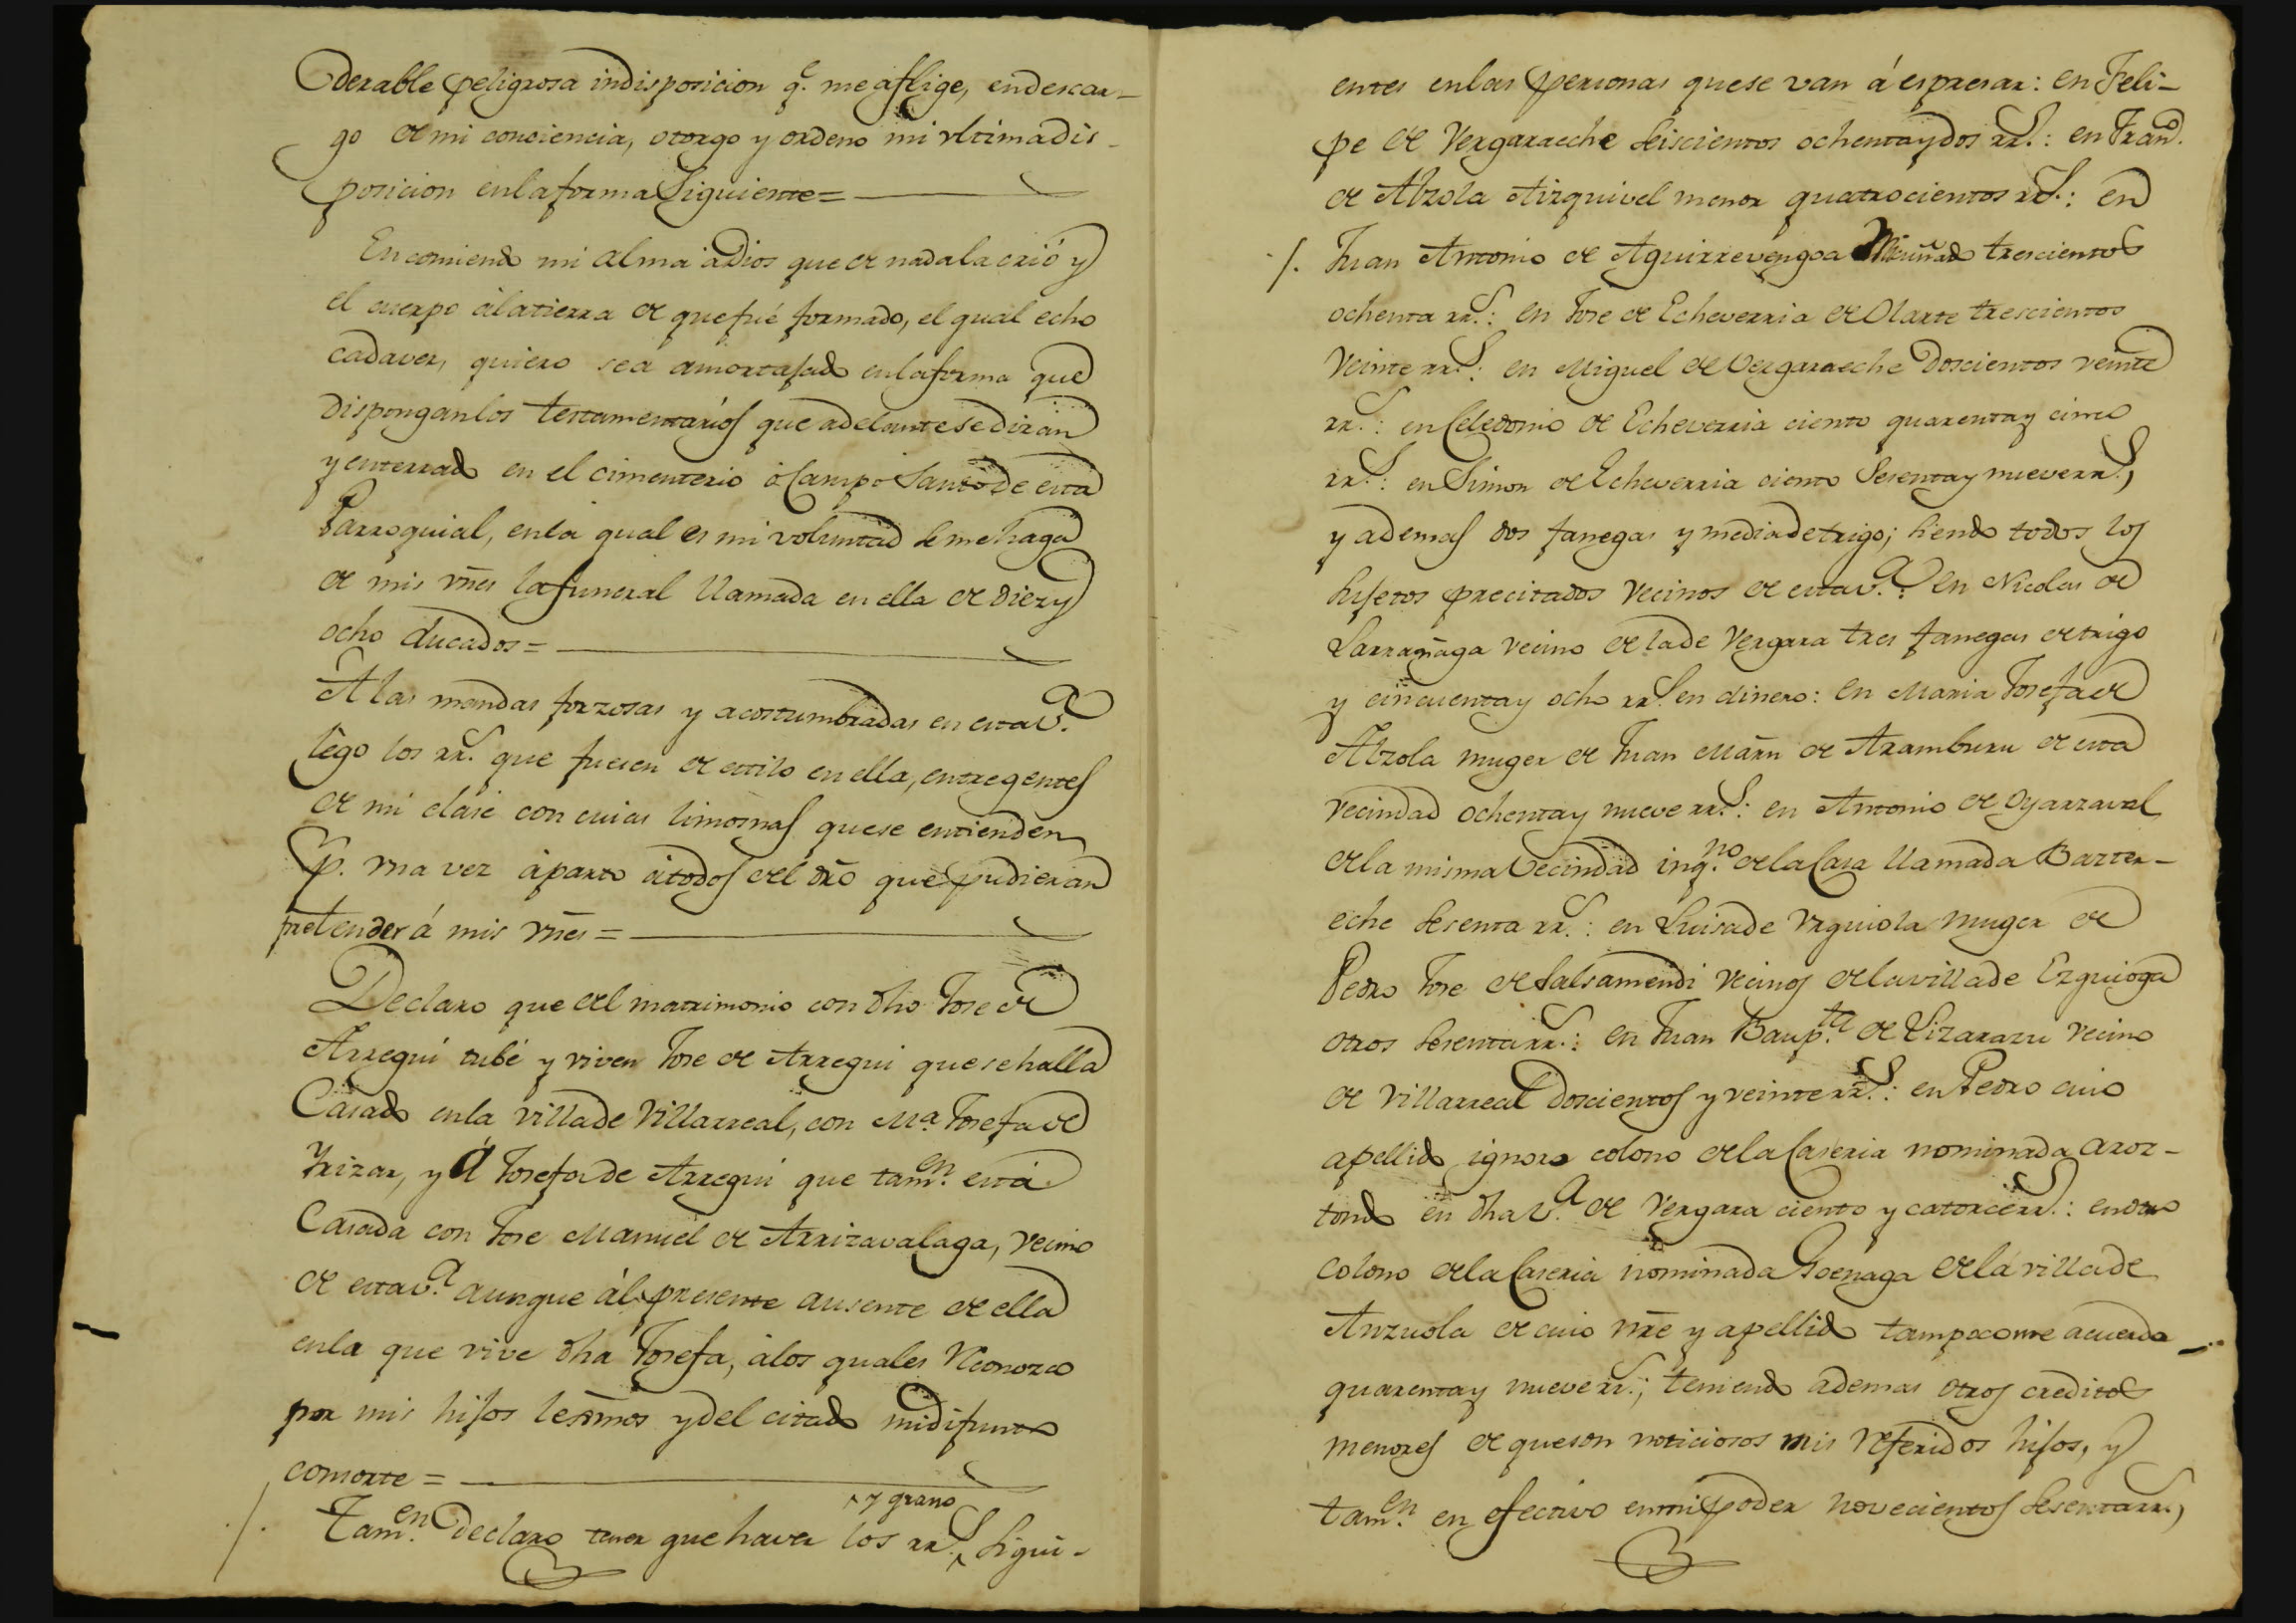 derable peligrosa indisposicion q.e me aflige, en descar-
go de mi conciencia, otorgo y ordeno mi ultima dis-
posicion en la forma siguiente=
Encomiendo mi alma à Dios que de nada la crió y
el cuerpo à la tierra de que fué formado, el qual echo
cadaver, quiero sea amortajado en la forma que
dispongan los testamentarios que adelante se diran
y enterrado en el cimenterio ò Campo Santo de esta
Parroquial, en la qual es mi voluntad se me haga
de mis vñes la funeral llamada en ella de diez y
ocho ducados=
A las mandas forzosas y acostumbradas en esta v.a
lego los rr.s que fuesen de estilo en ella, entre gentes
de mi clase con cuias limosnas que se entienden
p. una vez àparto à todos del dr̃o que pudieran
pretender á mis vñes=
Declaro que del matrimonio con dho Jose de
Arregui tubé y viven Jose de Arregui que se halla
Casado en la villa de Villarreal, con M.a Josefa de
Yrizar, y á Josefa de Arregui que tam.en está
Casada con Jose Manuel de Arrizavalaga, vecino
de esta v.a aunque àl presente ausente de ella
en la que vive dha Josefa, à los quales reconozco
por mis hijos lexm̃os y del citado mi difunto
consorte=
Tam.en declaro tener que haver los rr.s ^ y grano ^ sigui-
entes en las personas que se van á espresar: en Feli-
pe de Vergaraeche seiscientos ochenta y dos rr.s: en Fran.co
de Alzola Aizquivel menor quatrocientos rr.s: en
Juan Antonio de Aguirrevengoa trescientos
ochenta rr.s: en Jose de Echeverria de Olarte trescientos
veinte rr.s: en Miguel de Vergaraeche doscientos veinte
rr.s: en Celedonio de Echeverria ciento quarenta y cinco
rr.s: en Simon de Echeverria ciento sesenta y nueve rr.s,
y ademas dos fanegas y media de trigo; siendo todos los
sujetos precitados vecinos de esta v.a: en Nicolas de
Larrañaga vecino de la de Vergara tres fanegas de trigo
y cincuenta y ocho rr.s en dinero: en Maria Josefa de
Alzola muger de Juan Mãrn de Aramburu de esta
vecindad ochenta y nueve rr.s: en Antonio de Oyarzaval
de la misma vecindad inq.no de la Casa llamada Barter-
eche sesenta rr.s: en Luisa de Urquiola muger de
Pedro Jose de Salsamendi vecinos de la villa de Ezquioga
otros sesenta rr.s: en Juan Baup.ta de Lizarazu vecino
de Villarreal doscientos y veinte rr.s: en Pedro cuio
apellido ignoro colono de la Caseria nominada Aroz-
tondo en dha v.a de Vergara ciento y catorce rr.s: en otro
colono de la Caseria nominada Goenaga de la villa de
Anzuola de cuio ñre y apellido tampoco me acuerdo
quarenta y nueve rr.s; teniendo ademas otros creditos
menores de que son noticiosos mis referidos hijos, y
tam.en en efectivo en mi poder novecientos sesenta rr.s,